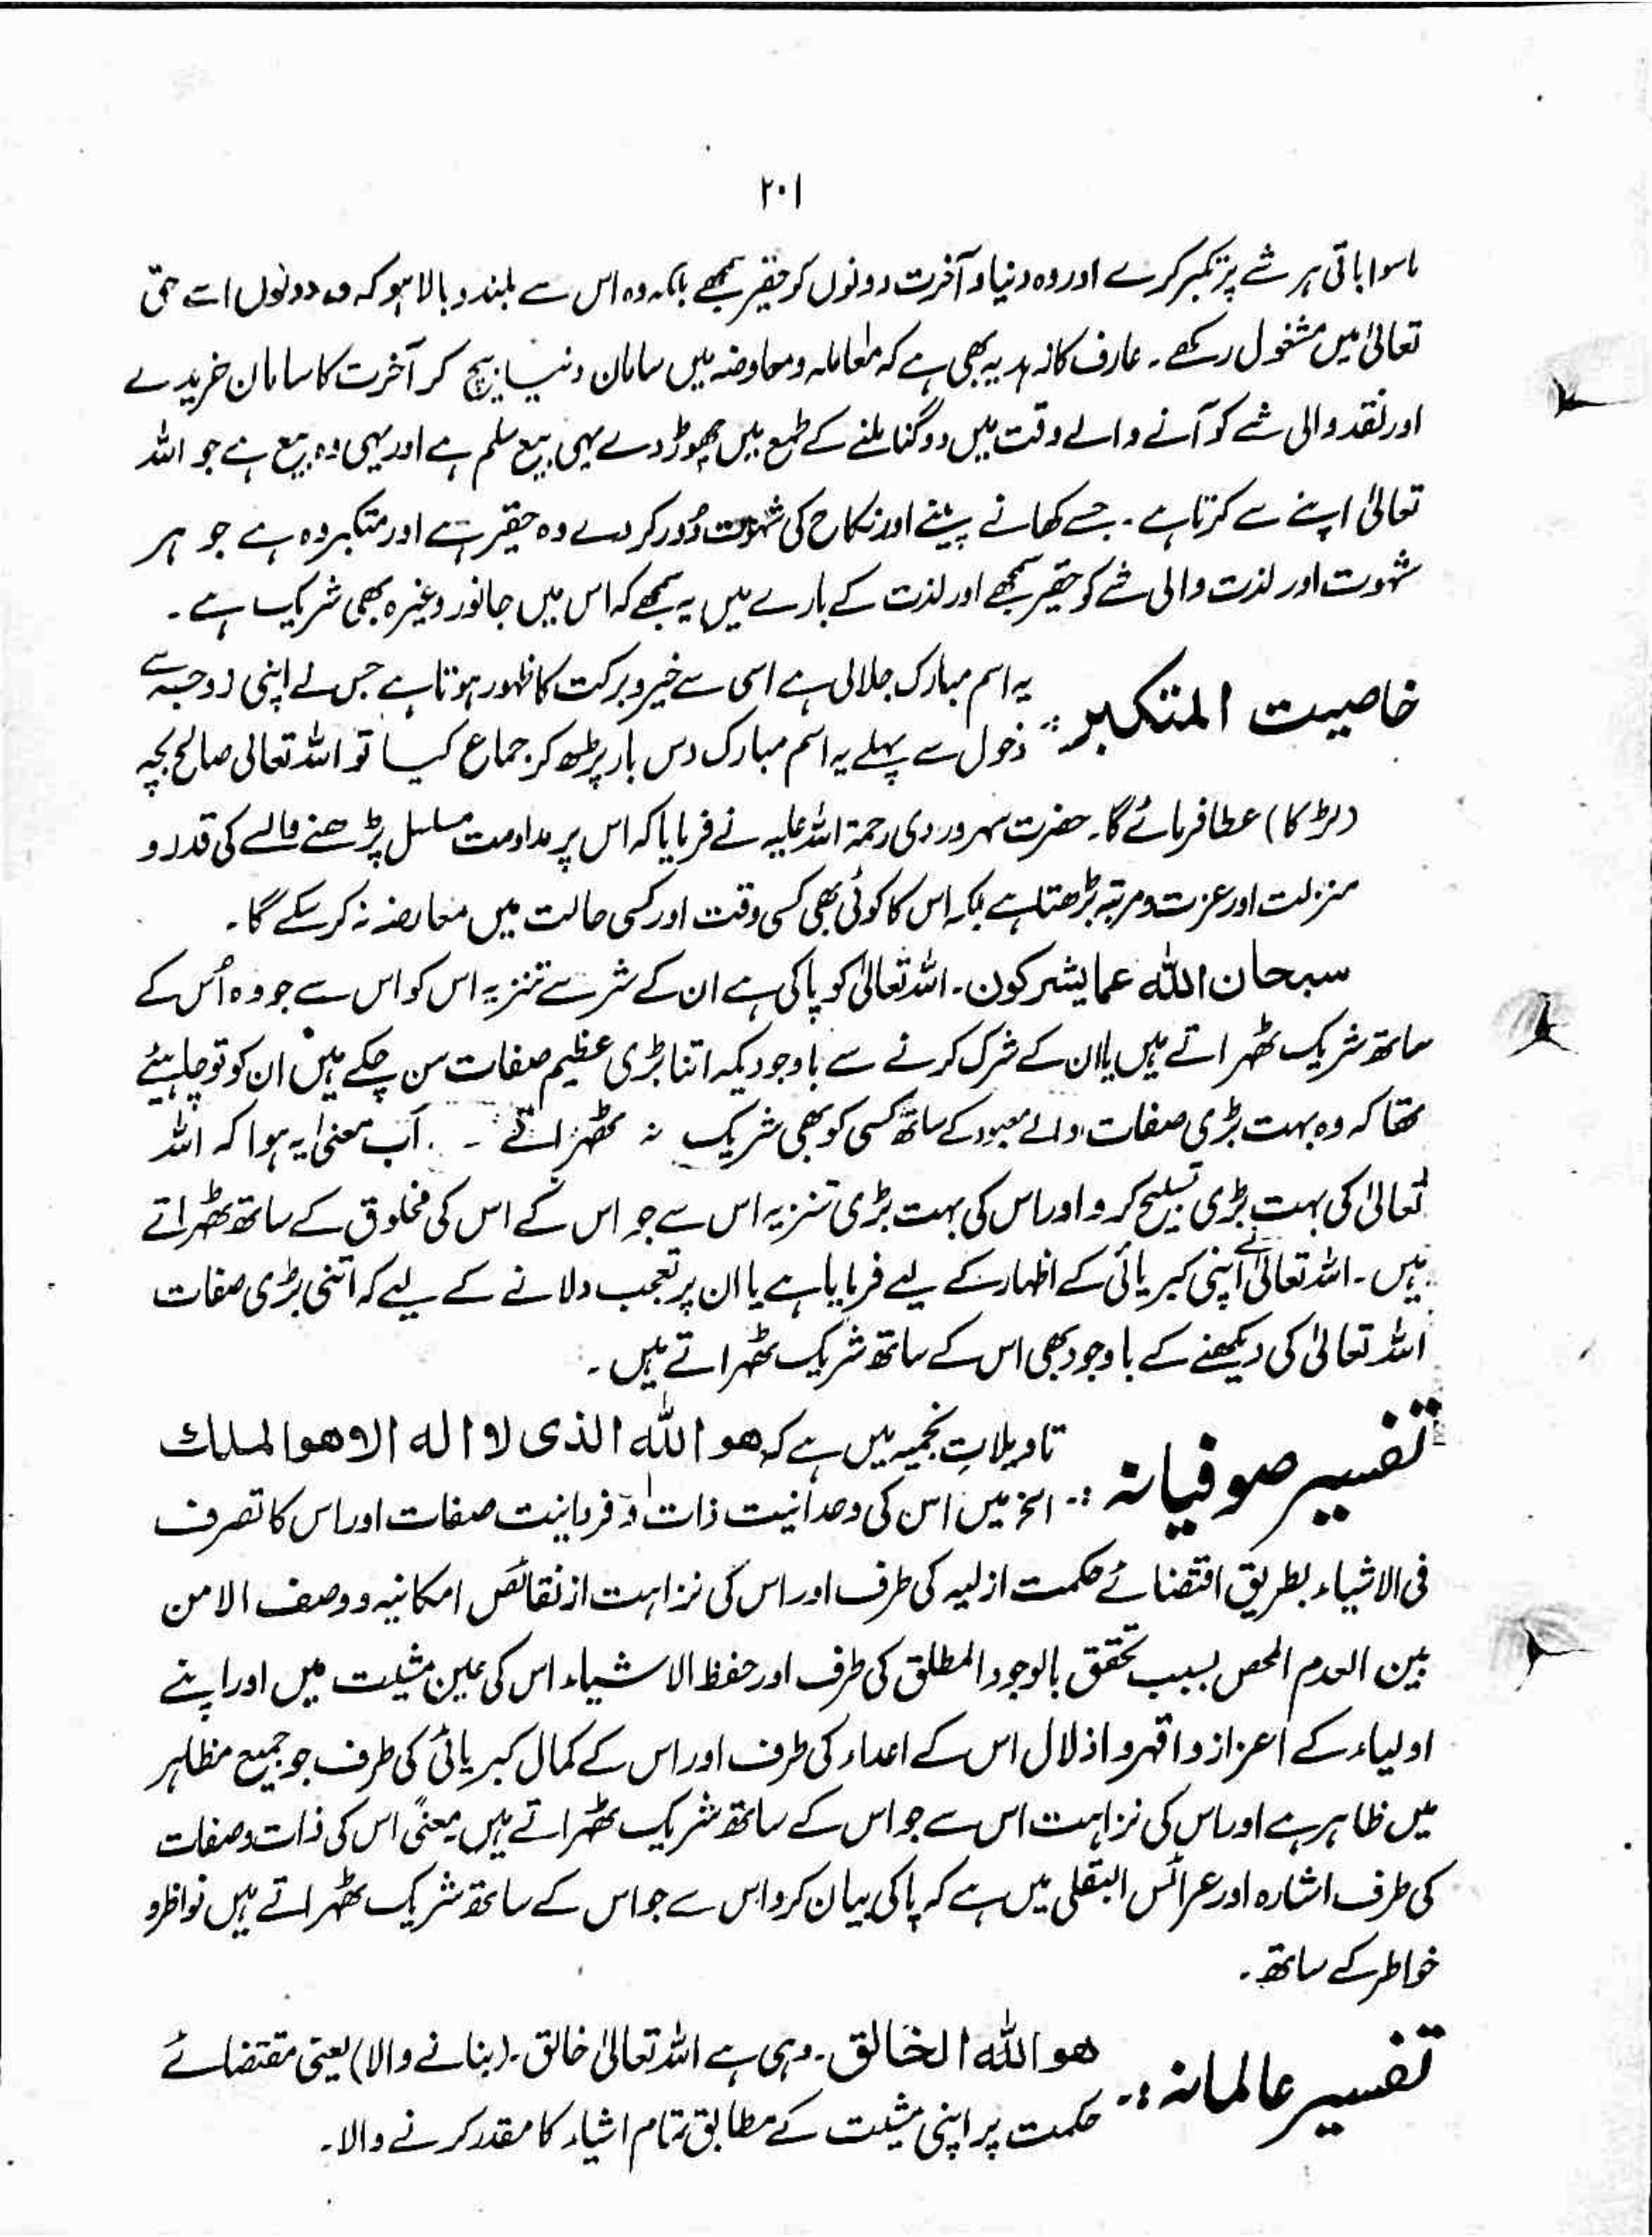 ۲۰۱
ماسوا باقی ہر شے پر تکبر کرے اور وہ دنیا و آخرت دونوں کو حقیر سمجھے بلکہ وہ اس سے بلند و بالا ہو کہ وہ دونوں اسے حق
تعالیٰ میں مشغول رکھے۔ عارف کا زہد یہ بھی ہے کہ معاملہ و معاوضہ میں سامان دنیا بیچ کر آخرت کا سامان خریدے
اور نقد والی شے کو آنے والے وقت میں دوگنا ملنے کے طمع میں چھوڑ دے یہی بیع سلم ہے اور یہی وہ بیع ہے جو اللہ
تعالیٰ اپنے سے کرتا ہے۔ جسے کھانے پینے اور نکاح کی شہوت دُور کر دے وہ حقیر ہے اور متکبر وہ ہے جو ہر
شہوت اور لذت والی شے کو حقیر سمجھے اور لذت کے بارے میں یہ سمجھے کہ اس میں جانور وغیرہ بھی شریک ہے۔
خاصیت المتکبر :۔ یہ اسم مبارک جلالی ہے اسی سے خیر و برکت کا ظہور ہوتا ہے جس نے اپنی زوجہ سے
دخول سے پہلے یہ اسم مبارک دس بار پڑھ کر جماع کیا تو اللہ تعالیٰ صالح بچہ
(لڑکا) عطا فرمائے گا۔ حضرت سہروردی رحمۃ اللہ علیہ نے فرمایا کہ اس پر مداومت مسلسل پڑھنے والے کی قدر و
منزلت اور عزت و مرتبہ بڑھتا ہے بلکہ اس کا کوئی بھی کسی وقت اور کسی حالت میں معارضہ نہ کر سکے گا۔
سبحان اللہ عما یشرکون۔ اللہ تعالیٰ کو پاکی ہے ان کے شر سے تنزیہ اس کو اس سے جو وہ اُس کے
ساتھ شریک ٹھہراتے ہیں یا ان کے شرک کرنے سے باوجودیکہ اتنا بڑی عظیم صفات سن چکے ہیں ان کو تو چاہیئے
تھا کہ وہ بہت بڑی صفات والے معبود کے ساتھ کسی کو بھی شریک نہ ٹھہراتے ۔ اَب معنیٰ یہ ہوا کہ اللہ
تعالیٰ کی بہت بڑی تسبیح کرو اور اس کی بہت بڑی تنزیہ اس سے جو اس کے اس کی مخلوق کے ساتھ ٹھہراتے
ہیں۔ اللہ تعالیٰ نے اپنی کبریائی کے اظہار کے لیے فرمایا ہے یا ان پر تعجب دلانے کے لیے کہ اتنی بڑی صفات
اللہ تعالیٰ کی دیکھنے کے باوجود بھی اس کے ساتھ شریک ٹھہراتے ہیں۔
تفسیر صوفیانہ :۔ تاویلاتِ نجمیہ میں ہے کہ ھو اللہ الذی لا الہ الا ھو الملک
الخ میں اس کی وحدانیت ذات و فردانیت صفات اور اس کا تصرف
فی الاشیاء بطریق اقتضائے حکمت ازلیہ کی طرف اور اس کی نزاہت از نقائص امکانیہ و وصف الامن
بین العدم المحض بسبب تحقق بالوجود المطلق کی طرف اور حفظ الاشیاء اس کی عین مشیت میں اور اپنے
اولیاء کے اعزاز و اقہر و اذلال اس کے اعداء کی طرف اور اس کے کمال کبریائی کی طرف جو جمیع مظاہر
میں ظاہر ہے اور اس کی نزاہت اس سے جو اس کے ساتھ شریک ٹھہراتے ہیں معنیً اس کی ذات و صفات
کی طرف اشارہ اور عرائس البقلی میں ہے کہ پاکی بیان کرو اس سے جو اس کے ساتھ شریک ٹھہراتے ہیں نواظر و
خواطر کے ساتھ۔
تفسیر عالمانہ :۔ ھو اللہ الخالق۔ وہی ہے اللہ تعالیٰ خالق۔ (بنانے والا) یعنی مقتضائے
حکمت پر اپنی مشیت کے مطابق تمام اشیاء کا مقدر کرنے والا۔